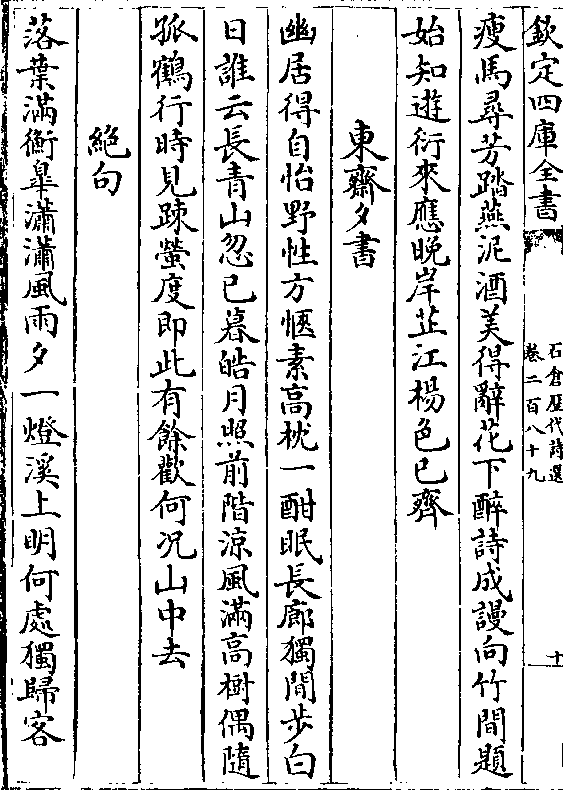 欽定四庫全書
石倉歷代詩選
卷二百八十九
十
瘦馬尋芳踏燕泥酒美得辭花下醉詩成謾向竹間題
始知遊衍來應晚岸芷江楊色已齊
東齋夕書
幽居得自怡野性方愜素高枕一酣眠長廊獨閒步白
日誰云長青山忽已暮皓月照前階涼風滿高樹偶隨
孤鶴行時見疎螢度即此有餘歡何況山中去
絶句
落葉滿衡臯瀟瀟風雨夕一燈溪上明何處獨歸客